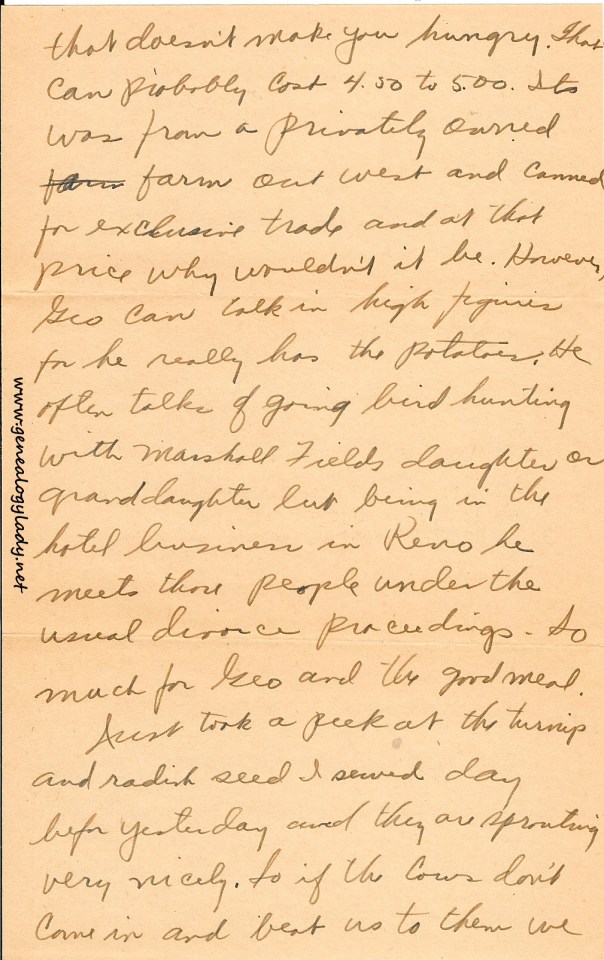 that doesn't make you hungry. That
can probably cost 4.50 to 5.00. Its
was from a privately owned
farm farm out west and canned
for exclusive trade and at that
price why wouldn't it be. However,
Geo can talk in high figures
for he really has the potatoes. He
often talks of going bird hunting
with Marshall Fields daughter or
granddaughter but being in the
hotel business in Reno he
meets those people under the
usual divorce proceedings. So
much for Geo and the good meal.
Just took a peek at the turnip
and radish seed I sewed day
befor yesterday and they are sprouting
very nicely. So if the cows don't
come in and beat us to them we
www.genealogylady.net